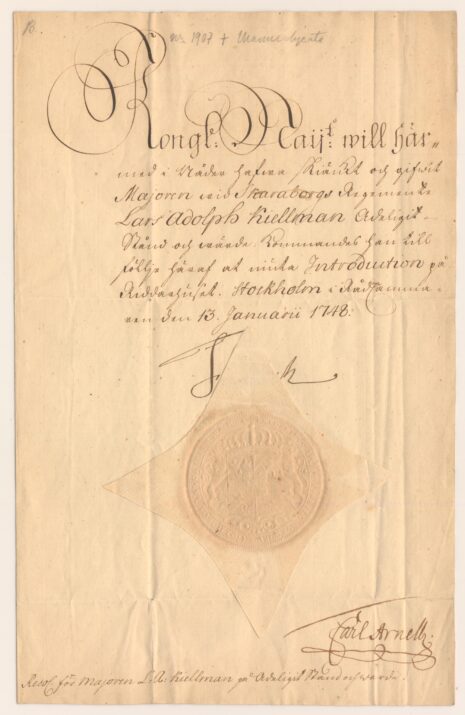 B.
nr 1907 † Mannerhjerta
Kongl. Maijt. will här„
med i Nåder hafwa skiänckt och gifwit
Majoren wid Skaraborgs Regemente
Lars Adolph Kiellman Adeligit
Stånd och wärde. Kommandes han till
följe häraf at niuta Introduction på
Riddarhuset. Stockholm i Rådkamma„
ren den 13. Januarii 1748.
Carl Arnell.
Resol. för Majoren L. A. Kiellman på Adeligit Stånd och wärde.